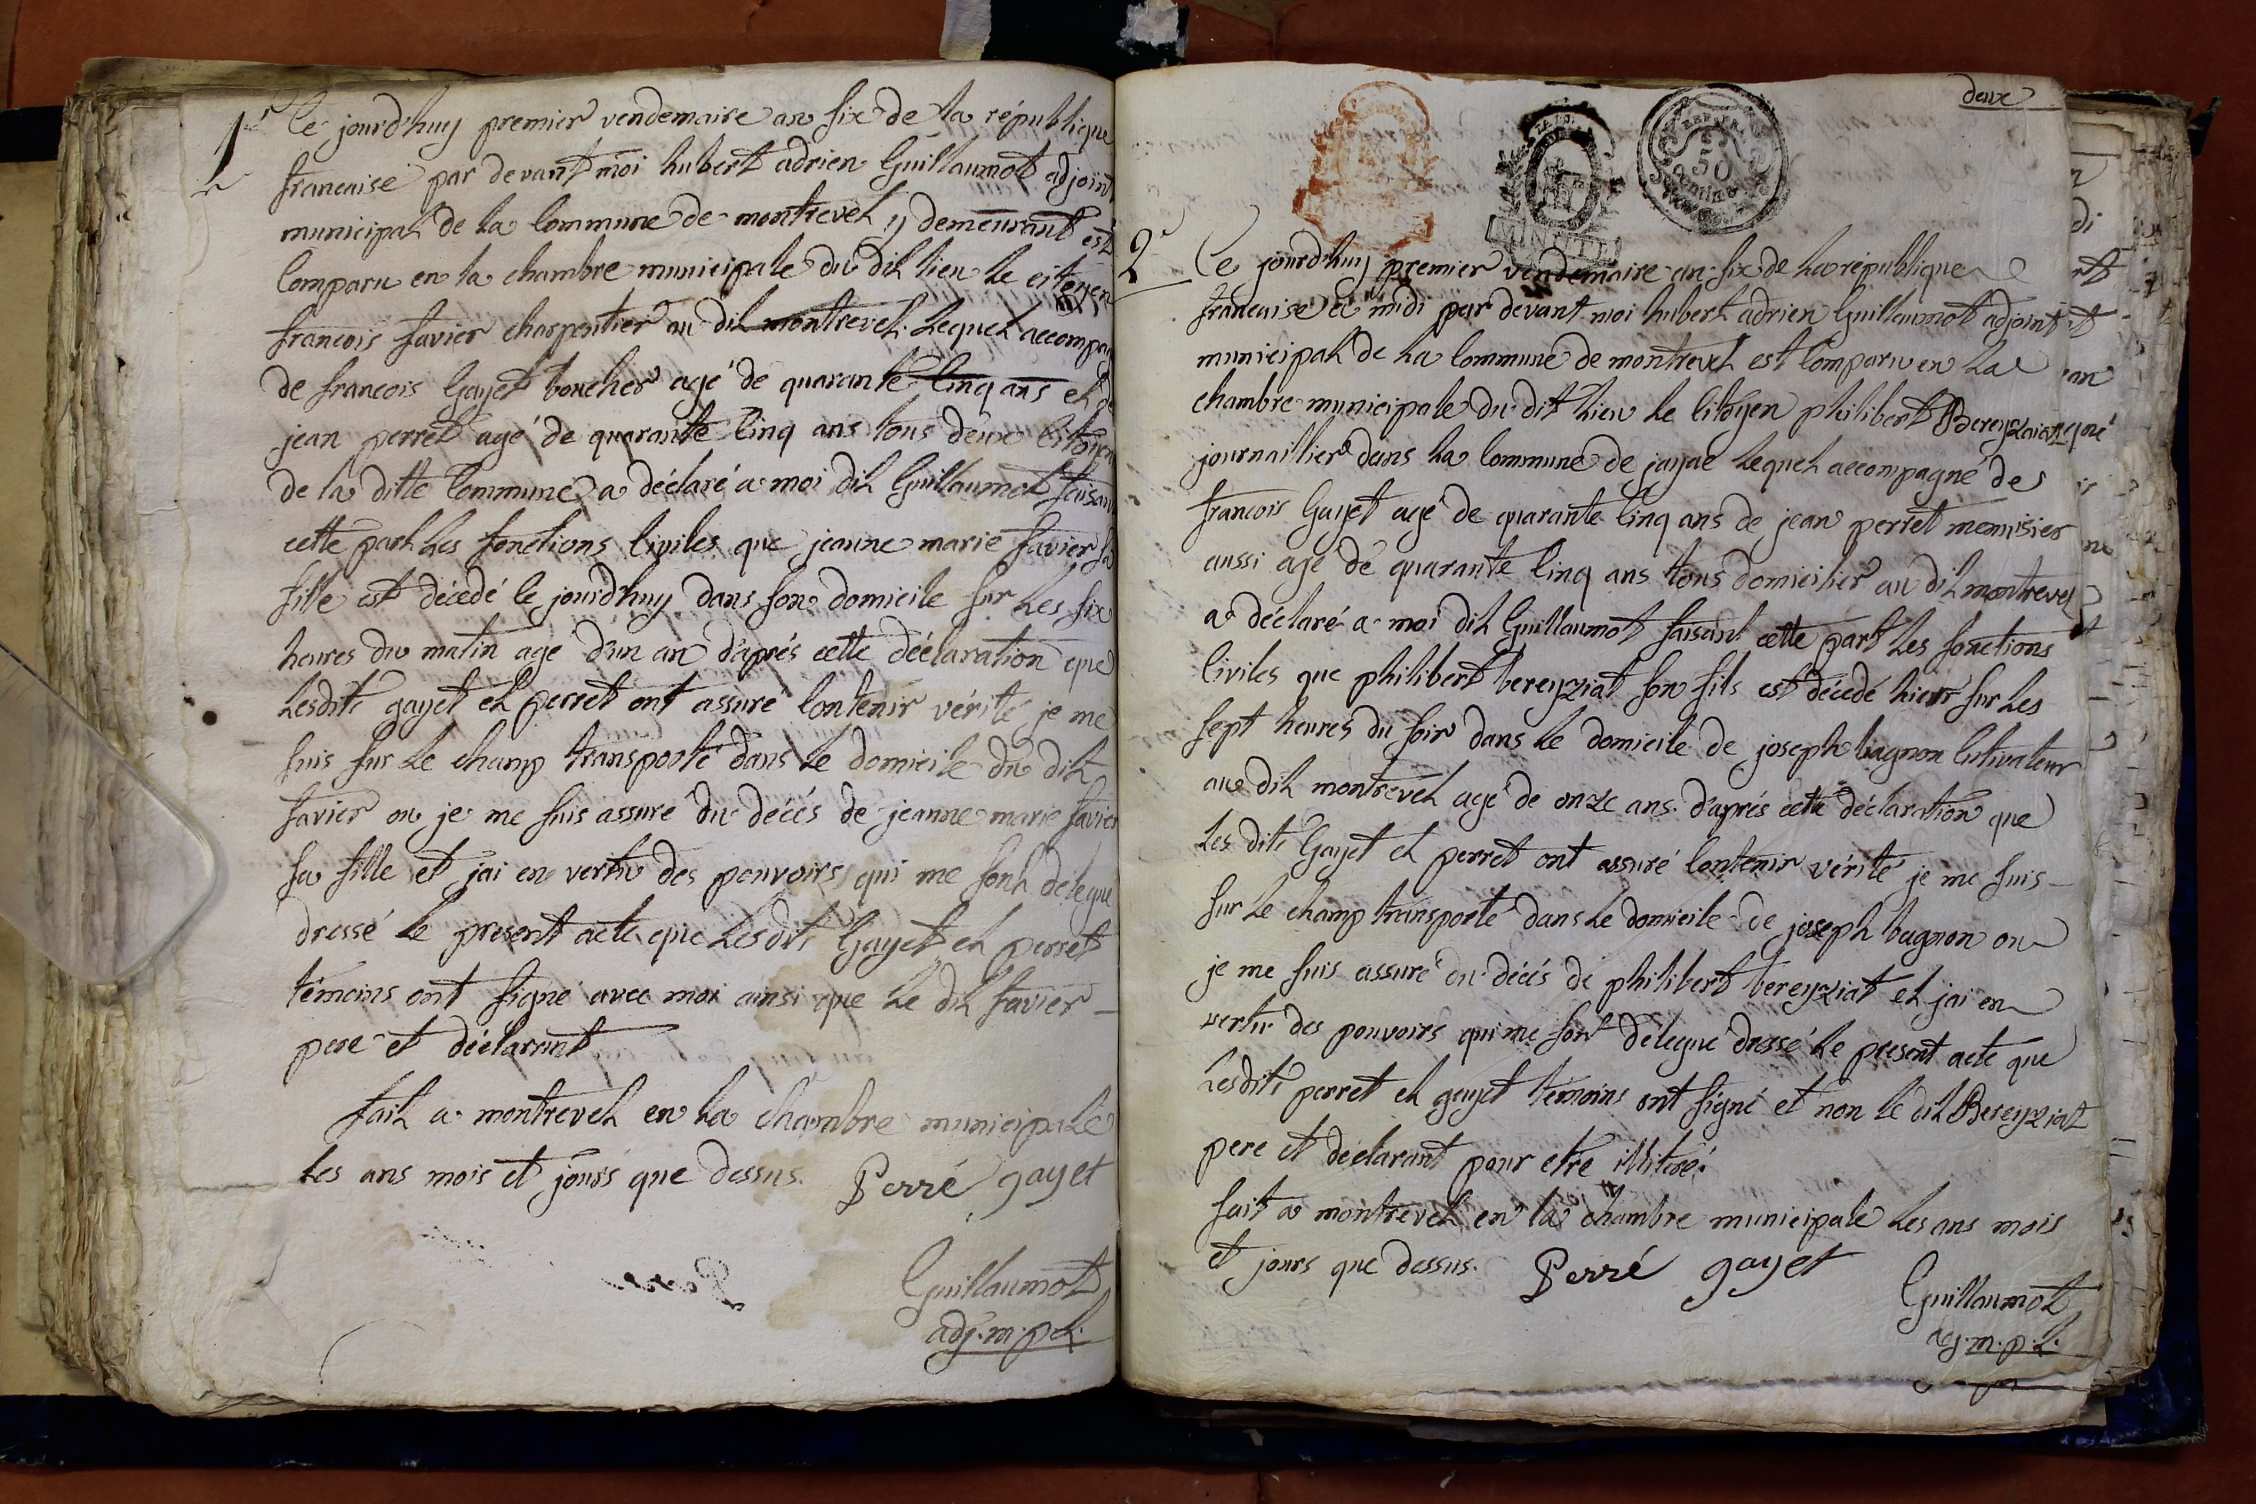 1r Ce jourd'huy premier vendemaire an six de la république
francaise par devant moi hubert adrien Guillaumot adjoint
municipal de la Commune de montrevel y demeurant est
Comparu en la chambre municipale du dit lieu le citoyen
francois favier charpentier au dit montrevel lequel accompa
de francois Gayet boucher agé de quarante Cinq ans et de
jean perret agé de quarante Cinq ans tous deux Citoyen
de la ditte Commune a déclaré a moi dit Guillaumot faisan
cette part les fonctions Civiles que jeanne marie favier sa
fille est décedé le jourd'huy dans son domicile sur les six
heures du matin agé d'un an d'aprés cette déclaration que
lesdits gayet et perret ont assuré Contenir vérité je me
suis sur le champ transporté dans le domicile du dit
favier ou je me suis assuré du décés de jeanne marie favier
sa fille et jai en vertu des pouvoirs qui me sont délegué
dressé le present acte que lesdits Gayet et perret
témoins ont signé avec moi ainsi que le dit favier
pere et déclarant
fait a montrevel en la chambre municipale
les ans mois et jours que dessus. Perré gayet
Guillaumot
adj. m. pal.
deux
LA LOI
REP. FRA.
50
centimes
MINUTE
2e Ce jourd'huy premier vendemaire an six de la république
francaise a midi par devant moi hubert adrien Guillaumot adjoint
municipal de la Commune de montrevel est Comparu en la
chambre municipale du dit lieu le Citoyen philibert Bereyziat
journaillier dans la Commune de jayac lequel accompagné de
francois Gayet agé de quarante Cinq ans de jean perret menuisier
aussi agé de quarante Cinq ans tous domicilier au dit montrevel
a déclaré a moi dit Guillaumot faisant cette part les fonctions
Civiles que philibert bereyziat son fils est décedé hierr sur les
sept heures du soir dans le domicile de joseph bagnon Cultivateur
au dit montrevel agé de onze ans. d'aprés cette déclaration que
les dits Gayet et perret ont assuré Contenir vérité je me suis
sur le champ transporté dans le domicile de joseph bagnon ou
je me suis assuré du décés de philibert bereyziat et jai en
vertu des pouvoirs qui me sont délegué dressé le present acte que
lesdits perret et gayet témoins ont signé et non le dit Bereyziat
pere et déclarant pour etre illitéré.
fait a montrevel en la chambre municipale les ans mois
et jours que dessus. Perré gayet
Guillaumot
adj. m. p. l.